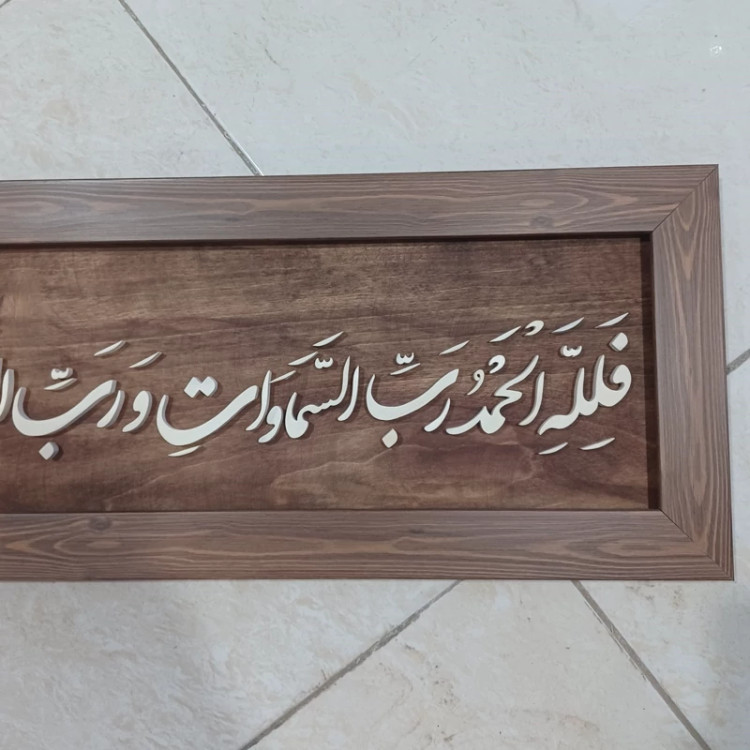 فَلِلّهِ الْحَمْدُ رَبِّ السَّمَاوَاتِ وَ رَبِّ